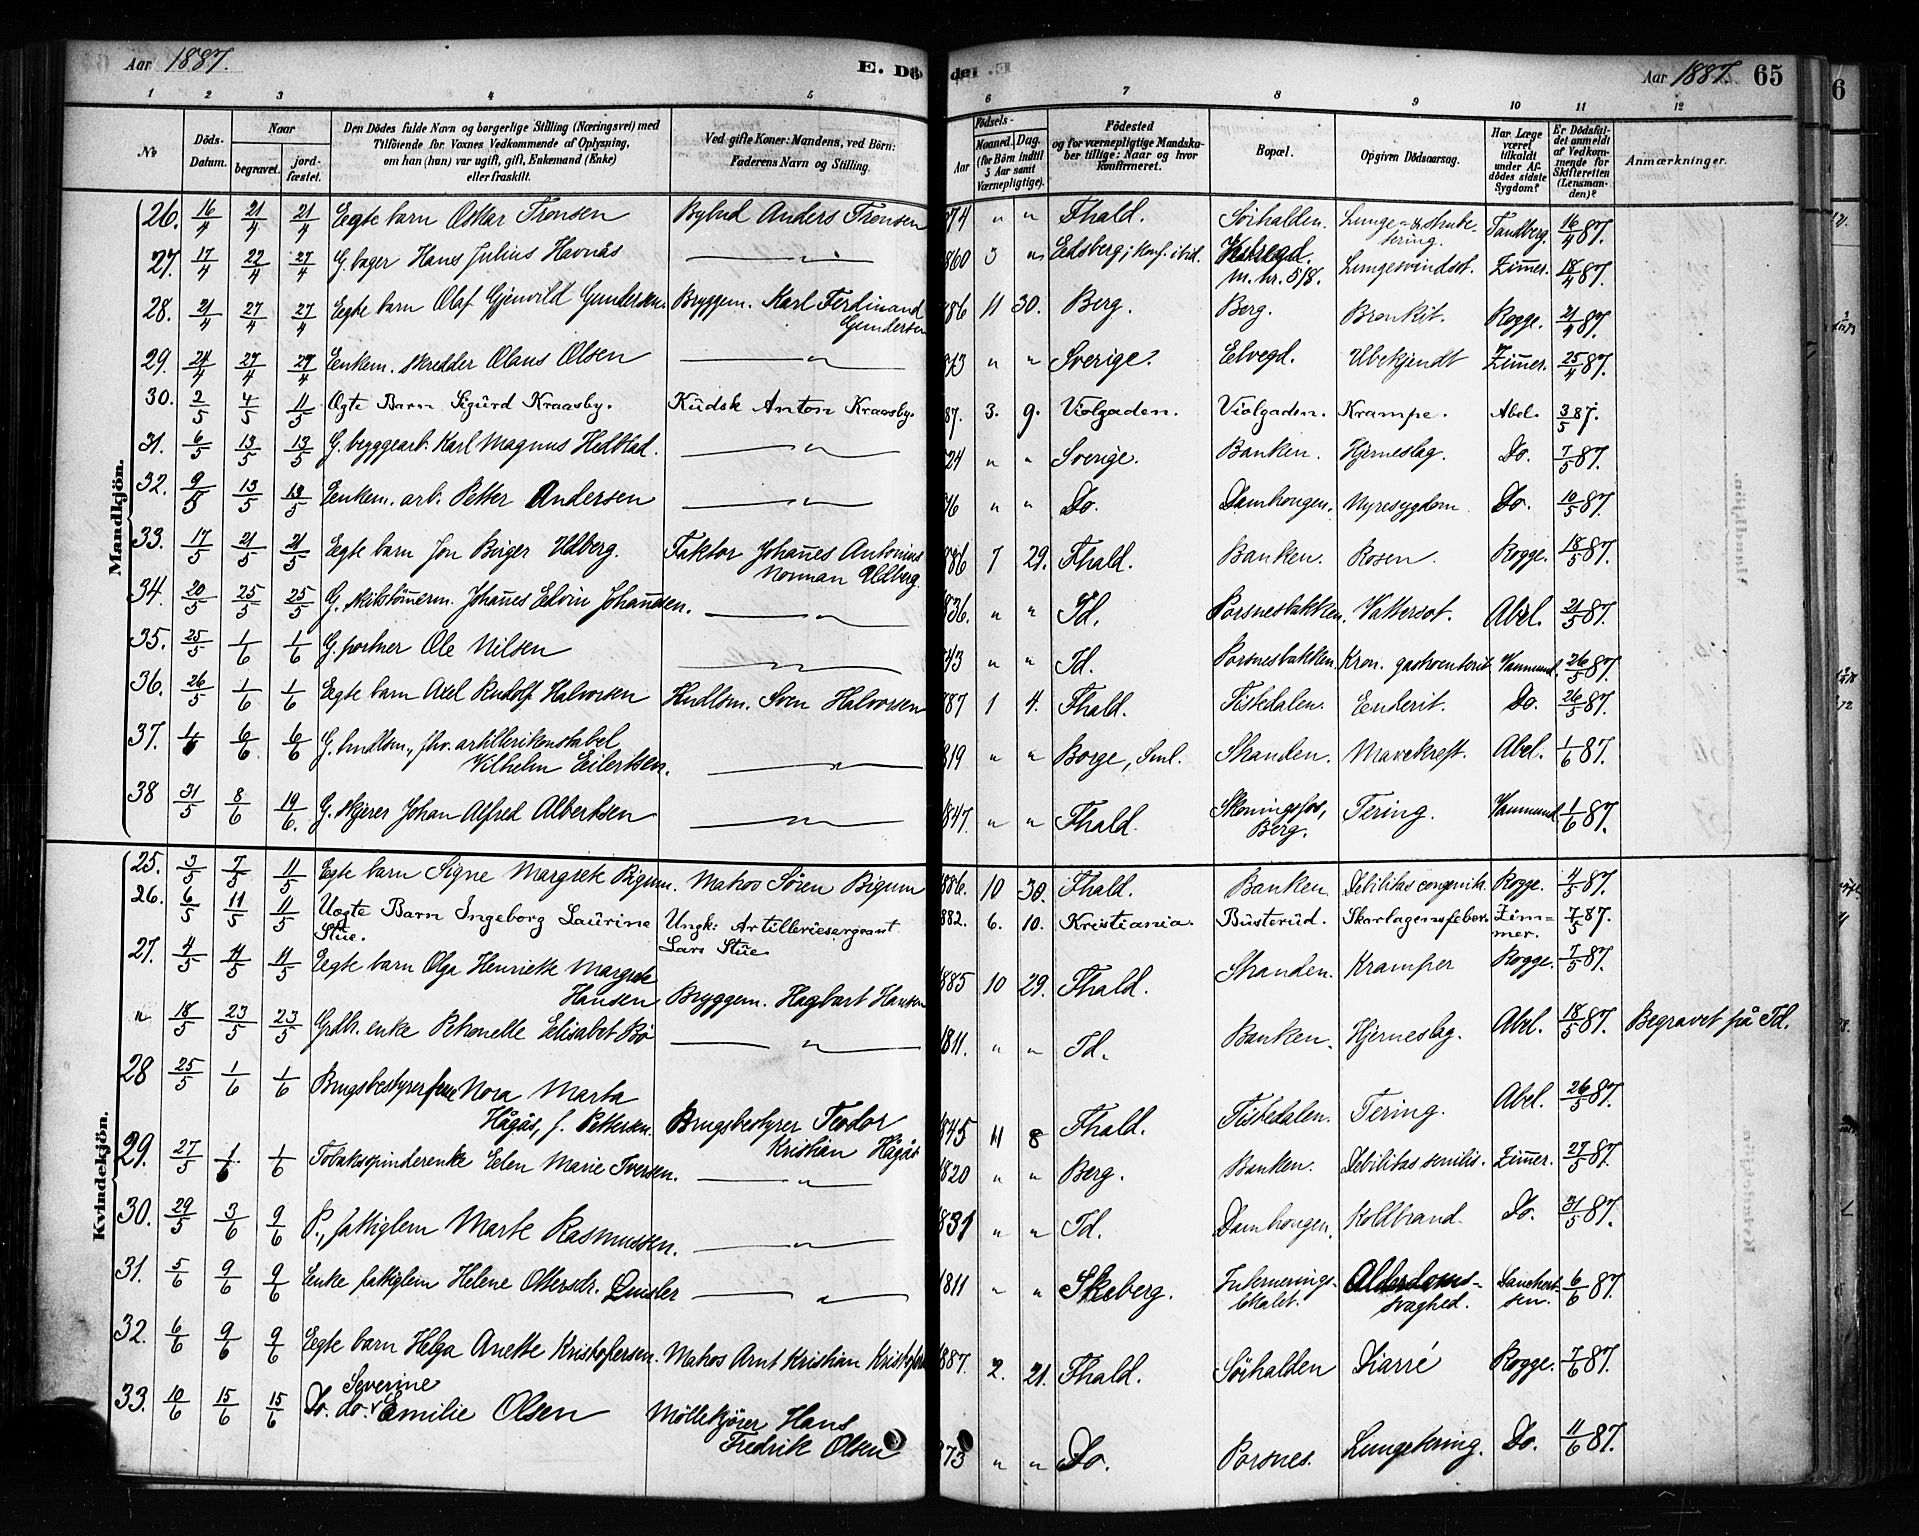 Aar 1887. E. Dö de. Aar 1887. 65
1 2 3 4 5 6 7 8 9 10 11 12
No Döds-Datum. Naar begravet. jordfæstet. Den Dödes fulde Navn og borgerlige Stilling (Næringsvei) med Tilföiende for Voxnes Vedkommende af Oplysning, om han (hun) var ugift, gift, Enkemand (Enke) eller fraskilt. Ved gifte Koner: Mandens, ved Börn: Faderens Navn og Stilling. Födsels- Aar Maaned. Dag. (for Börn indtil 5 Aar samt Værnepligtige). Födested og for værnepligtige Mandskaber tillige: Naar og hvor konfirmeret. Bopæl. Opgiven Dödsaarsag. Har Læge været tilkaldt under Afdödes sidste Sygdom? Er Dödsfaldet anmeldt af Vedkommende for Skifteretten (Lensmanden)? Anmærkninger.
Mandkjön.
26. 16/4 21/4 21/4 Egte barn Oskar Tronsen Bybud Anders Tronsen 874 " " Fhald. Söihalden. Lunge- & strubetering. Tandberg. 16/4 87.
27. 17/4 22/4 27/4 G. bager Hans Julius Havnås — " — 860 3 " Edsberg; konf. ibid. m. nr. 518. Lungesvindsot. Zimmer. 18/4 87.
28. 21/4 27/4 27/4 Egte barn Olaf Gjenvild Gundersen. Bryggem. Karl Ferdinand Gundersen 86 11 30. Berg. Berg. Bronkit. Rogge. 21/4 87.
29. 24/4 27/4 27/4 Enkem. skredder Olaus Olsen — " — 813 " " Sverige. Elvegd. Ubekjendt Zimmer. 25/4 87.
30. 2/5 4/5 11/5 Ægte Barn Sigurd Kraasby. Kudsk Anton Kraasby. 87. 3. 9. Violgaden. Violgaden. Krampe. Abel. 3/5 87.
31. 6/5 13/5 13/5 G. bryggearb. Karl Magnus Hedblad. — " — 24 " " Sverige. Banken. Hjerneslag. Do. 7/5 87.
32. 9/5 13/5 13/5 Enkem. arb. Petter Andersen — " — " " Do. Damhaugen. Nyresygdom Do. 10/5 87.
33. 17/5 21/5 21/5 Egte barn Jon Birger Udberg. Faktor Johannes Antonius Norman Udberg 886 7 29. Fhald. Banken. Rosen. Rogge. 18/5 87.
34. 20/5 25/5 25/5 G. skibstömmerm. Johannes Edvin Johannesen. — " — 836. " " Id. Porsnesbakken. Vattersot. Abel. 21/5 87.
35. 25/5 1/6 1/6 G. portner Ole Nilsen — " — 43 " " Id. Porsnesbakken. Kron. gastroenterit. Vammund. 26/5 87.
36. 26/5 1/6 1/6 Egte barn Axel Rudolf Halvorsen Handlsm. Sven Halvorsen 887 1 4. Fhald. Tistedalen. Enterit. Do. 26/5 87.
37. 1/6 6/6 6/6 G. handlsm., fhv. artillerikonstabel Vilhelm Eilertsen. — " — 819 " " Borge, Sml. Skanden. Mavekreft. Abel. 1/6 87.
38 31/5 8/6 19/6. G. skjerer Johan Alfred Albertsen — " — 1847. " " Fhald. Skoningsfos, Berg. Tering. Vammund. 1/6 87.
Kvindekjön.
25. 3/5 7/5 11/5 Egte barn Signe Margrete Bigum. Matros Sören Bigum 886. 10 30. Fhald. Banken Debilitas congenita. Rogge. 4/5 87.
26. 6/5 11/5 11/5 Uegte Barn Ingeborg Laurine Stue. Ungk: Artilleriesergeant Lars Stue 882. 6. 10. Kristiania. Busterud. Skarlagensfeber. Zimmer. 7/5 87.
27. 4/5 11/5 11/5 Egte barn Olga Henriette Margrete Hansen Bryggem. Hagbart Hansen 885 10 29. Fhald. Skanden. Kramper Rogge. 7/5 87.
" 18/5 23/5 23/5 Grdb. enke Petronelle Elisabet Bö — " — 1811. " " Id. Banken. Hjerneslag. Abel. 18/5 87. Begravet på Id.
28 25/5 1/6 1/6 Brugsbestyrerfrue Nora Marta Hågås, f. Pettersen. Brugsbestyrer Teodor Kristian Hågås 845 11 8 Fhald. Tistedalen. Tering. Abel. 26/5 87.
29. 27/5 1/6 1/6 Tobaksspinderenke Elen Marie Iversen. — " — 1820 " " Berg. Banken. Debilitas senilis. Zimmer. 27/5 87.
30. 29/5 3/6 9/6 P., fattiglem Marte Rasmussen. — " — 831 " " Id. Damhaugen. Koldbrand. Do. 31/5 87.
31. 5/6 9/6 9/6 Enke fattiglem Helene Ottersdr. Quisler — " — 1811 " " Skeberg. Interneringslokalet. Alderdomssvaghed. 6/6 87.
32. 6/6 9/6 9/6 Egte barn Helga Anette Kristofersen. Matros Arnt Kristian Kristofersen 1887. 2. 21. Fhald. Söihalden Diarré Rogge. 7/6 87.
33. 10/6 15/6 15/6 Do. do. Severine Emilie Olsen Möllekjörer Hans Fredrik Olsen 873 " " Do. Porsnes. Lungetering. Do. 11/6 87.